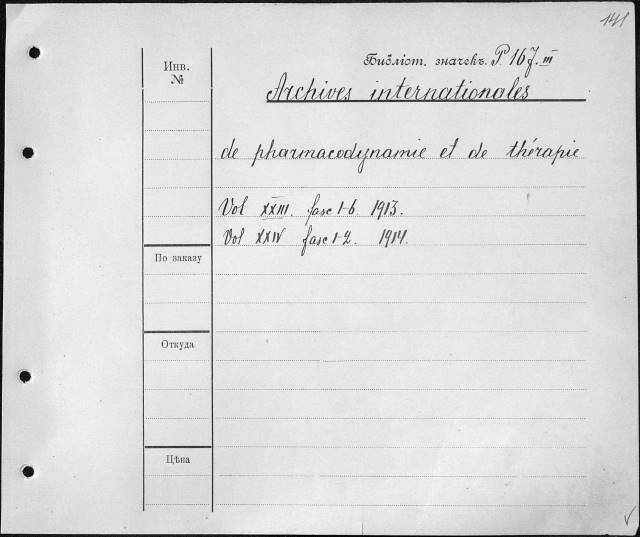 141
Библіот. значекъ. P. 167. III
Инв.
№
Archives internationales
de pharmacodynamie et de thérapie
Vol XXIII. fasc 1-6. 1913.
Vol XXIV fasc 1-2. 1914.
По заказу
Откуда
Цѣна